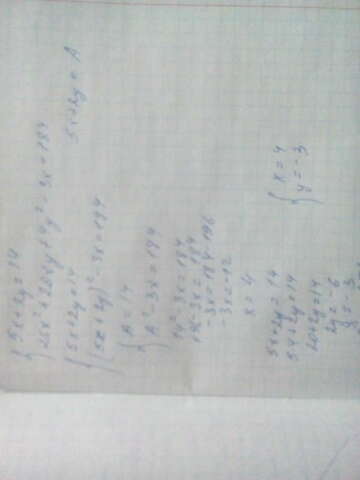 { 5x+2y=14
25x²+20xy+4y²-3x=184
{ 5x+2y=14
(5x+2y)²-3x=184
5x+2y=A
{ A=14
A²-3x=184
14²-3x=184
196-3x=184
-3x=184-196
-3x=-12
x=4
5x+2y=14
5·4+2y=14
20+2y=14
2y=-6
y=-3
{ x=4
y=-3